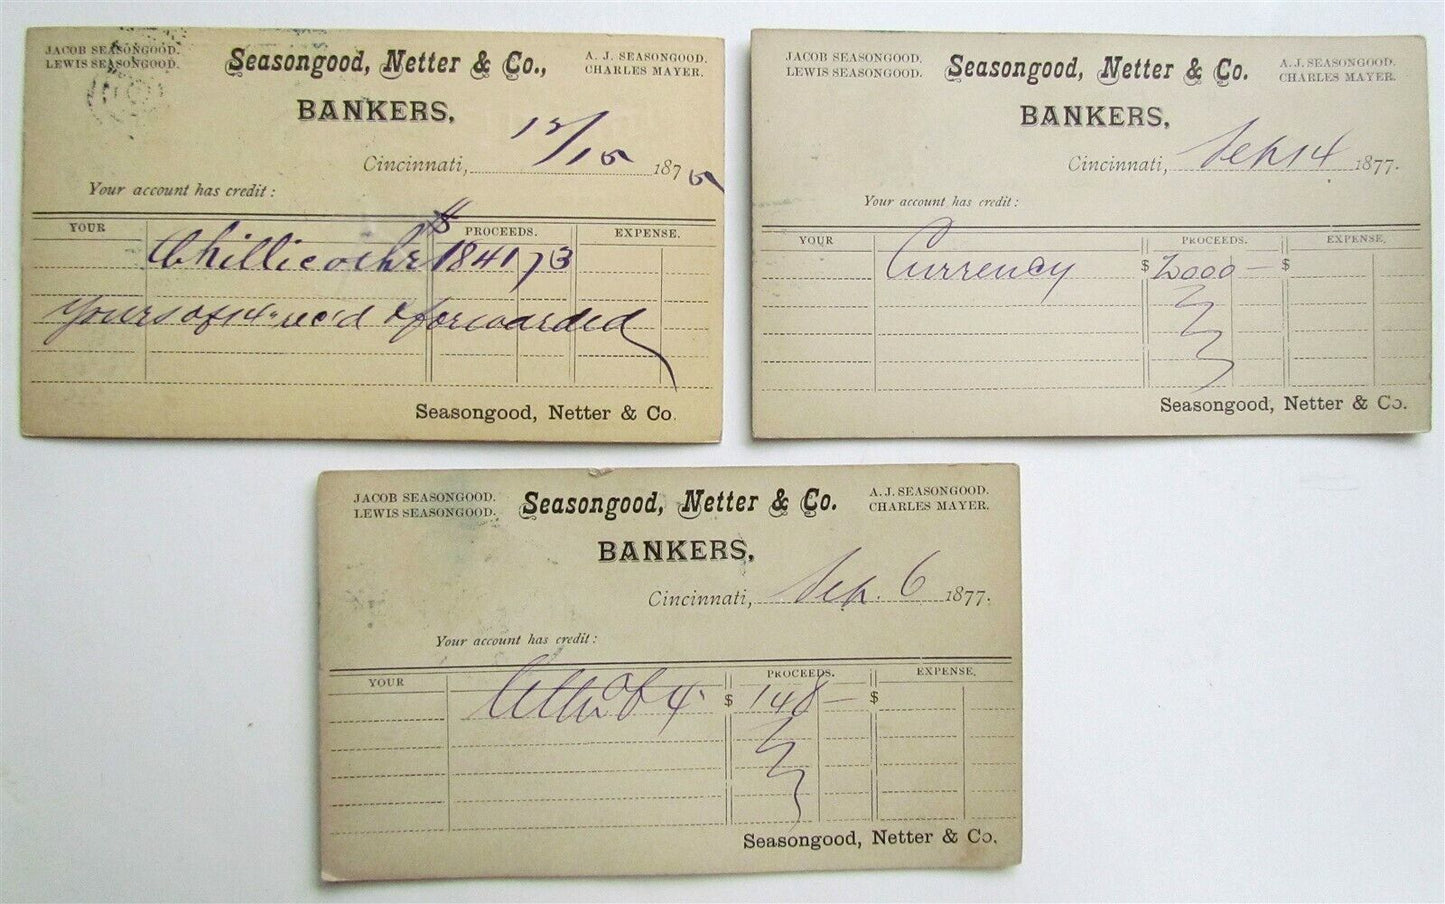 JACOB SEASONGOOD.
LEWIS SEASONGOOD.
Seasongood, Netter & Co.,
A. J. SEASONGOOD.
CHARLES MAYER.
BANKERS,
Cincinnati, 12/15 1875
Your account has credit:
YOUR PROCEEDS. EXPENSE.
Chillicothe $ 1841 73
Yours of 14" rec'd & forwarded
Seasongood, Netter & Co.
JACOB SEASONGOOD.
LEWIS SEASONGOOD.
Seasongood, Netter & Co.
A. J. SEASONGOOD.
CHARLES MAYER.
BANKERS,
Cincinnati, Sep 14 1877.
Your account has credit:
YOUR PROCEEDS. EXPENSE.
Currency $ 2000 – $
Seasongood, Netter & Co.
JACOB SEASONGOOD.
LEWIS SEASONGOOD.
Seasongood, Netter & Co.
A. J. SEASONGOOD.
CHARLES MAYER.
BANKERS,
Cincinnati, Sep. 6 1877.
Your account has credit:
YOUR PROCEEDS. EXPENSE.
of 4" $ 148 – $
Seasongood, Netter & Co.